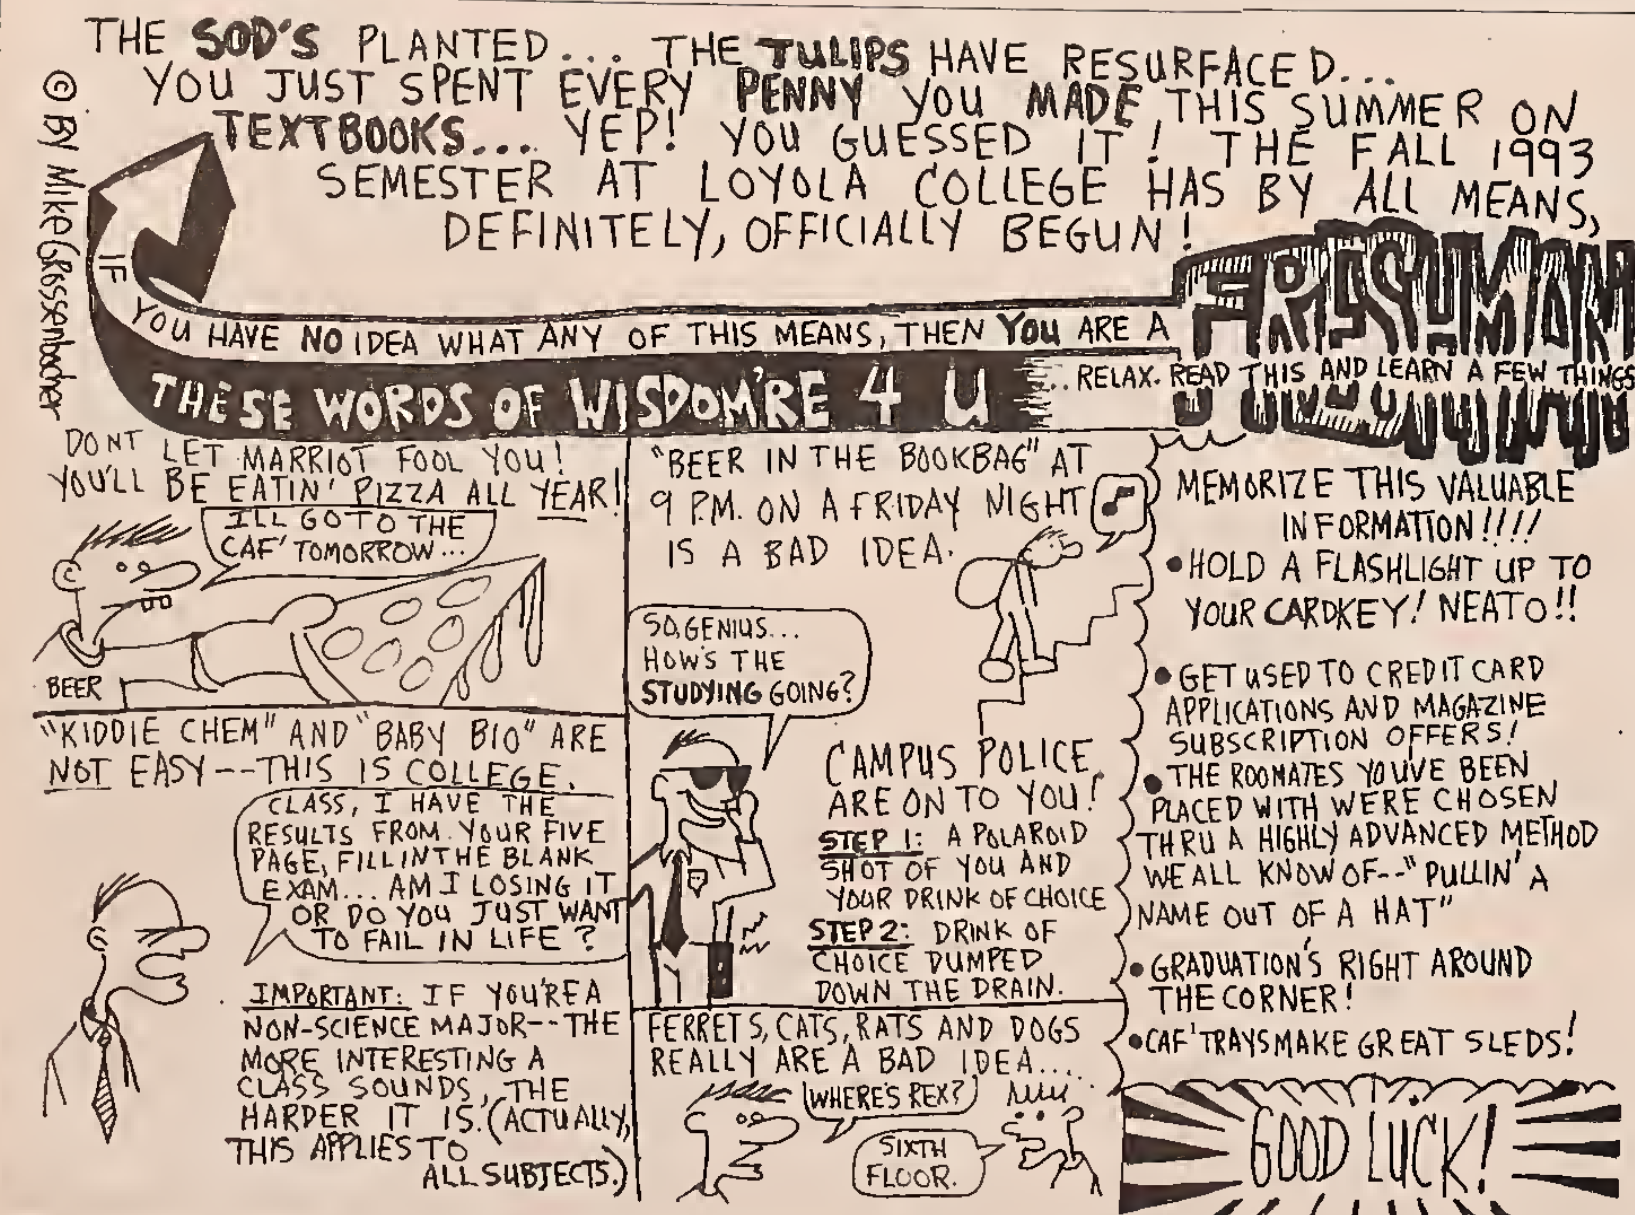 THE SOD'S PLANTED... THE TULIPS HAVE RESURFACED...
YOU JUST SPENT EVERY PENNY YOU MADE THIS SUMMER ON
TEXTBOOKS.... YEP! YOU GUESSED IT! THE FALL 1993
SEMESTER AT LOYOLA COLLEGE HAS BY ALL MEANS,
DEFINITELY, OFFICIALLY BEGUN!
© BY MIKE GROSSENBACHER
IF YOU HAVE NO IDEA WHAT ANY OF THIS MEANS, THEN YOU ARE A FRESHMAN
THESE WORDS OF WISDOM'RE 4 U ... RELAX. READ THIS AND LEARN A FEW THINGS
DONT LET MARRIOT FOOL YOU!
YOU'LL BE EATIN' PIZZA ALL YEAR!
I'LL GO TO THE
CAF' TOMORROW...
BEER
"KIDDIE CHEM" AND "BABY BIO" ARE
NOT EASY--THIS IS COLLEGE.
CLASS, I HAVE THE
RESULTS FROM YOUR FIVE
PAGE, FILL IN THE BLANK
EXAM... AM I LOSING IT
OR DO YOU JUST WANT
TO FAIL IN LIFE?
IMPORTANT: IF YOU'RE A
NON-SCIENCE MAJOR--THE
MORE INTERESTING A
CLASS SOUNDS, THE
HARDER IT IS. (ACTUALLY,
THIS APPLIES TO
ALL SUBJECTS.)
"BEER IN THE BOOKBAG" AT
9 P.M. ON A FRIDAY NIGHT
IS A BAD IDEA.
SO, GENIUS...
HOW'S THE
STUDYING GOING?
CAMPUS POLICE
ARE ON TO YOU!
STEP 1: A POLAROID
SHOT OF YOU AND
YOUR DRINK OF CHOICE
STEP 2: DRINK OF
CHOICE DUMPED
DOWN THE DRAIN.
FERRETS, CATS, RATS AND DOGS
REALLY ARE A BAD IDEA....
WHERE'S REX?
SIXTH
FLOOR.
MEMORIZE THIS VALUABLE
INFORMATION!!!!
•HOLD A FLASHLIGHT UP TO
YOUR CARDKEY! NEATO!!
•GET USED TO CREDIT CARD
APPLICATIONS AND MAGAZINE
SUBSCRIPTION OFFERS!
•THE ROOMATES YOUVE BEEN
PLACED WITH WERE CHOSEN
THRU A HIGHLY ADVANCED METHOD
WE ALL KNOW OF--"PULLIN' A
NAME OUT OF A HAT"
•GRADUATION'S RIGHT AROUND
THE CORNER!
•CAF' TRAYS MAKE GREAT SLEDS!
GOOD LUCK!